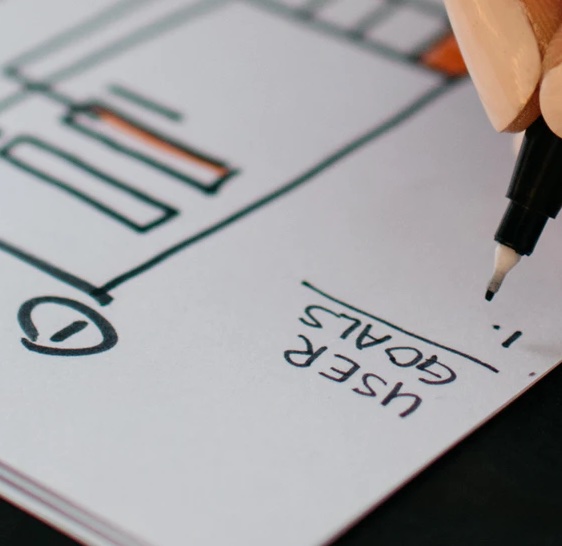 USER
GOALS
1.
1